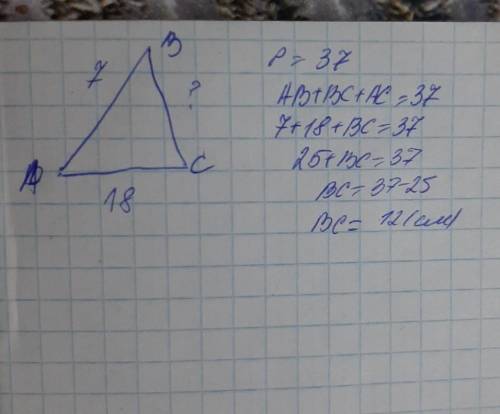 B
7
?
A
C
18
P = 37
AB+BC+AC=37
7+18+BC=37
25+BC=37
BC=37-25
BC= 12(см)